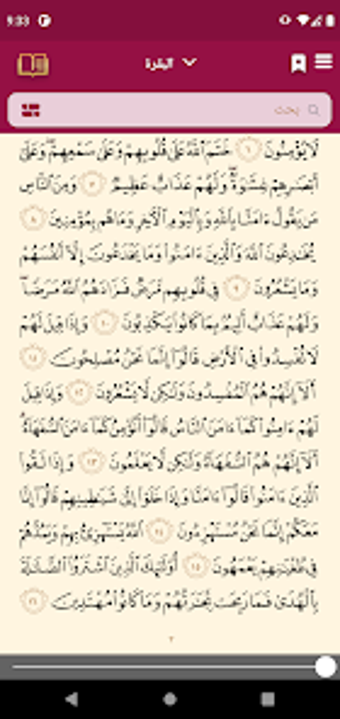 9:33
البقرة
بحث
لَا يُؤْمِنُونَ ٦ خَتَمَ ٱللَّهُ عَلَىٰ قُلُوبِهِمْ وَعَلَىٰ سَمْعِهِمْ ۖ وَعَلَىٰٓ
أَبْصَٰرِهِمْ غِشَٰوَةٌ ۖ وَلَهُمْ عَذَابٌ عَظِيمٌ ٧ وَمِنَ ٱلنَّاسِ
مَن يَقُولُ ءَامَنَّا بِٱللَّهِ وَبِٱلْيَوْمِ ٱلْءَاخِرِ وَمَا هُم بِمُؤْمِنِينَ ٨
يُخَٰدِعُونَ ٱللَّهَ وَٱلَّذِينَ ءَامَنُوا۟ وَمَا يَخْدَعُونَ إِلَّآ أَنفُسَهُمْ
وَمَا يَشْعُرُونَ ٩ فِى قُلُوبِهِم مَّرَضٌ فَزَادَهُمُ ٱللَّهُ مَرَضًا ۖ
وَلَهُمْ عَذَابٌ أَلِيمٌۢ بِمَا كَانُوا۟ يَكْذِبُونَ ١٠ وَإِذَا قِيلَ لَهُمْ
لَا تُفْسِدُوا۟ فِى ٱلْأَرْضِ قَالُوٓا۟ إِنَّمَا نَحْنُ مُصْلِحُونَ ١١
أَلَآ إِنَّهُمْ هُمُ ٱلْمُفْسِدُونَ وَلَٰكِن لَّا يَشْعُرُونَ ١٢ وَإِذَا قِيلَ
لَهُمْ ءَامِنُوا۟ كَمَآ ءَامَنَ ٱلنَّاسُ قَالُوٓا۟ أَنُؤْمِنُ كَمَآ ءَامَنَ ٱلسُّفَهَآءُ ۗ
أَلَآ إِنَّهُمْ هُمُ ٱلسُّفَهَآءُ وَلَٰكِن لَّا يَعْلَمُونَ ١٣ وَإِذَا لَقُوا۟
ٱلَّذِينَ ءَامَنُوا۟ قَالُوٓا۟ ءَامَنَّا وَإِذَا خَلَوْا۟ إِلَىٰ شَيَٰطِينِهِمْ قَالُوٓا۟ إِنَّا
مَعَكُمْ إِنَّمَا نَحْنُ مُسْتَهْزِءُونَ ١٤ ٱللَّهُ يَسْتَهْزِئُ بِهِمْ وَيَمُدُّهُمْ
فِى طُغْيَٰنِهِمْ يَعْمَهُونَ ١٥ أُو۟لَٰٓئِكَ ٱلَّذِينَ ٱشْتَرَوُا۟ ٱلضَّلَٰلَةَ
بِٱلْهُدَىٰ فَمَا رَبِحَت تِّجَٰرَتُهُمْ وَمَا كَانُوا۟ مُهْتَدِينَ ١٦
٣